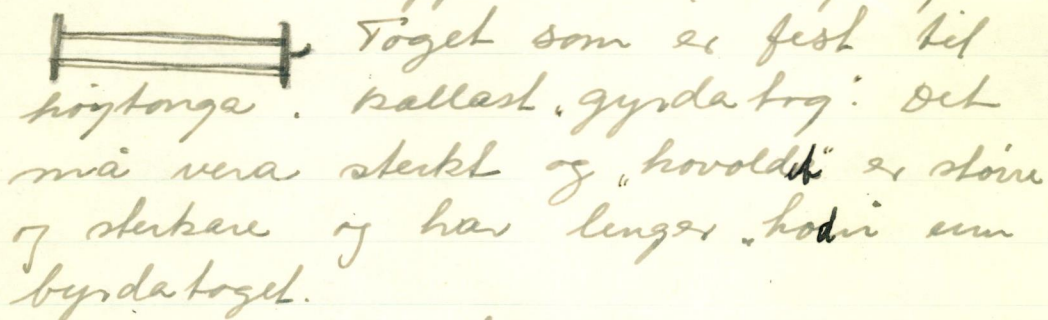 Toget som er fest til
høytonga. Kallast „gyrdatog". Det
må vera sterkt og „hovoldet" er større
og sterkare og har lenger „hodn enn
byrdatoget.